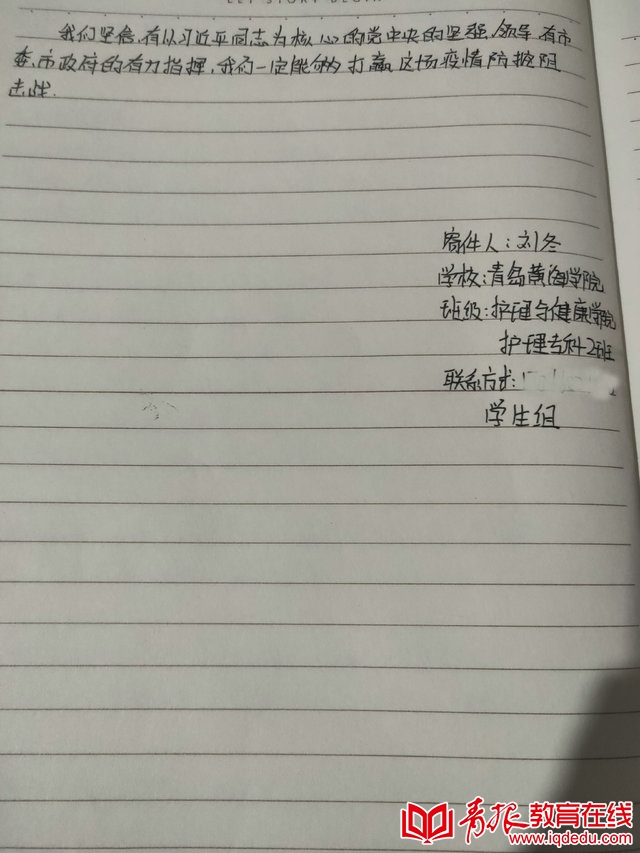 LET STORY BEGIN
我们坚信,有以习近平同志为核心的党中央的坚强领导,有市
委、市政府的有力指挥,我们一定能够打赢这场疫情防控阻
击战.
寄件人:刘冬
学校:青岛黄海学院
班级:护理与健康学院
护理专科2班
联系方式:
学生组
青报教育在线
www.iqdedu.com